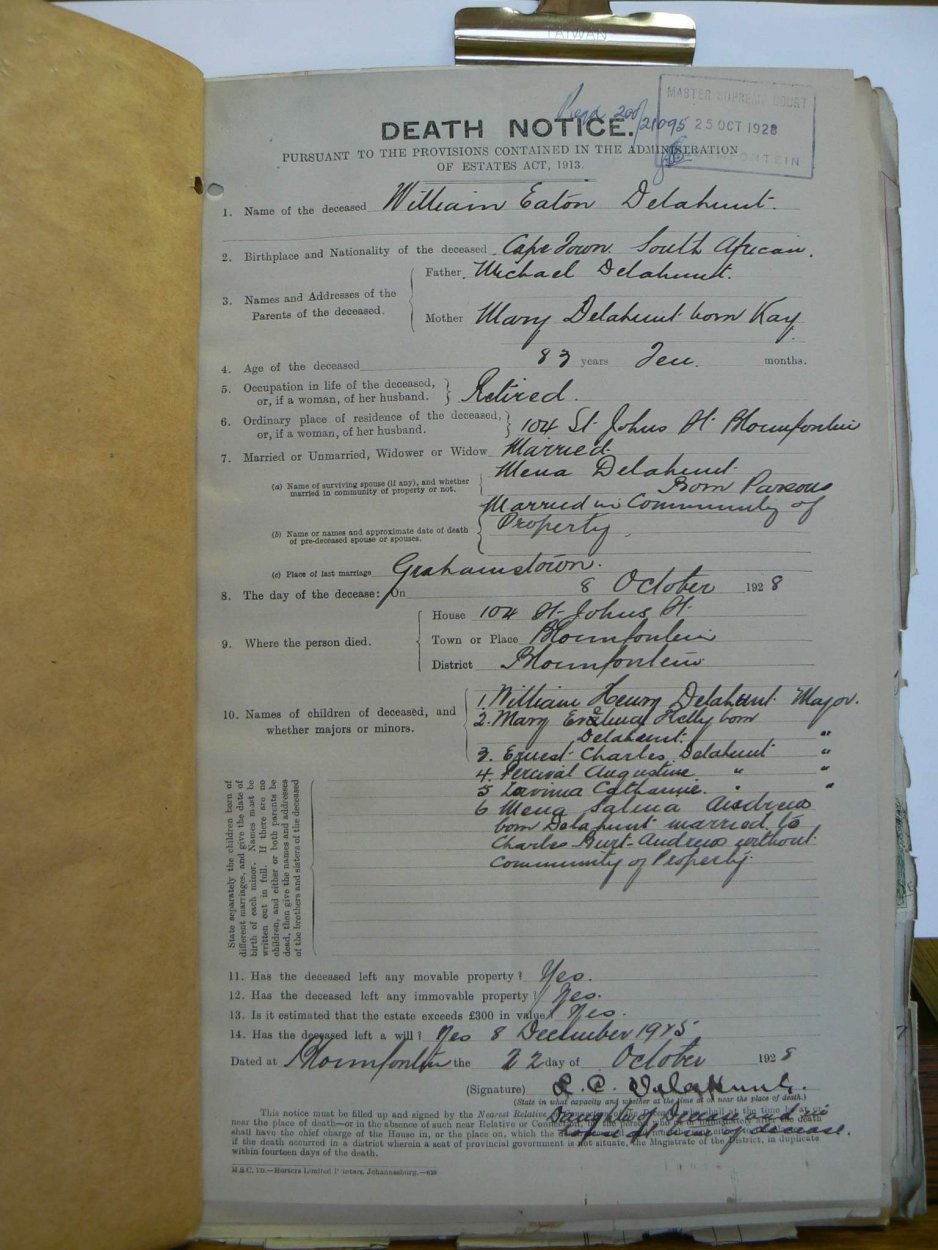 TAIWAN
Regd 200/21095
MASTER SUPREME COURT
25 OCT 1928
BLOEMFONTEIN
DEATH NOTICE.
PURSUANT TO THE PROVISIONS CONTAINED IN THE ADMINISTRATION
OF ESTATES ACT, 1913.
1. Name of the deceased William Eaton Delahunt.
2. Birthplace and Nationality of the deceased Cape Town South African.
3. Names and Addresses of the Parents of the deceased. Father Michael Delahunt.
Mother Mary Delahunt born Kay
4. Age of the deceased 83 years Ten months.
5. Occupation in life of the deceased, or, if a woman, of her husband. Retired.
6. Ordinary place of residence of the deceased, or, if a woman, of her husband. 104 St. Johns St. Bloemfontein
7. Married or Unmarried, Widower or Widow Married.
(a) Name of surviving spouse (if any), and whether married in community of property or not. Mena Delahunt.
Born Parsons
Married in Community of
Property.
(b) Name or names and approximate date of death of pre-deceased spouse or spouses.
(c) Place of last marriage Grahamstown.
8. The day of the decease: On 8 October 1928
9. Where the person died. House 104 St. Johns St.
Town or Place Bloemfontein
District Bloemfontein
10. Names of children of deceased, and whether majors or minors.
1. William Henry Delahunt Major.
2. Mary Kelly born
Delahunt. "
3. Ernest Charles Delahunt "
4. Percival Augustine " "
5 Lavinia Catharine. " "
6 Mena Salina Andrews
born Delahunt married to
Charles Burt-Andrews without
Community of Property.
State separately the children born of
different marriages, and give the date of
birth of each minor. Names must be
written out in full. If there are no
children, and either or both parents be
dead, then give the names and addresses
of the brothers and sisters of the deceased
11. Has the deceased left any movable property? Yes.
12. Has the deceased left any immovable property? Yes.
13. Is it estimated that the estate exceeds £300 in value? Yes.
14. Has the deceased left a will? Yes 8 December 1915
Dated at Bloemfontein the 22 day of October 1928
(Signature) L. C. Delahunt.
(State in what capacity and whether at the time at or near the place of death.)
Daughter of Decease and in
house at time of decease.
This notice must be filled up and signed by the Nearest Relative
near the place of death—or in the absence of such near Relative or
shall have the chief charge of the House in, or the place on, which the
if the death occurred in a district wherein a seat of provincial government is not situate, the Magistrate of the District, in duplicate
within fourteen days of the death.
M.S.C. YD.—Hortors Limited Printers, Johannesburg.—